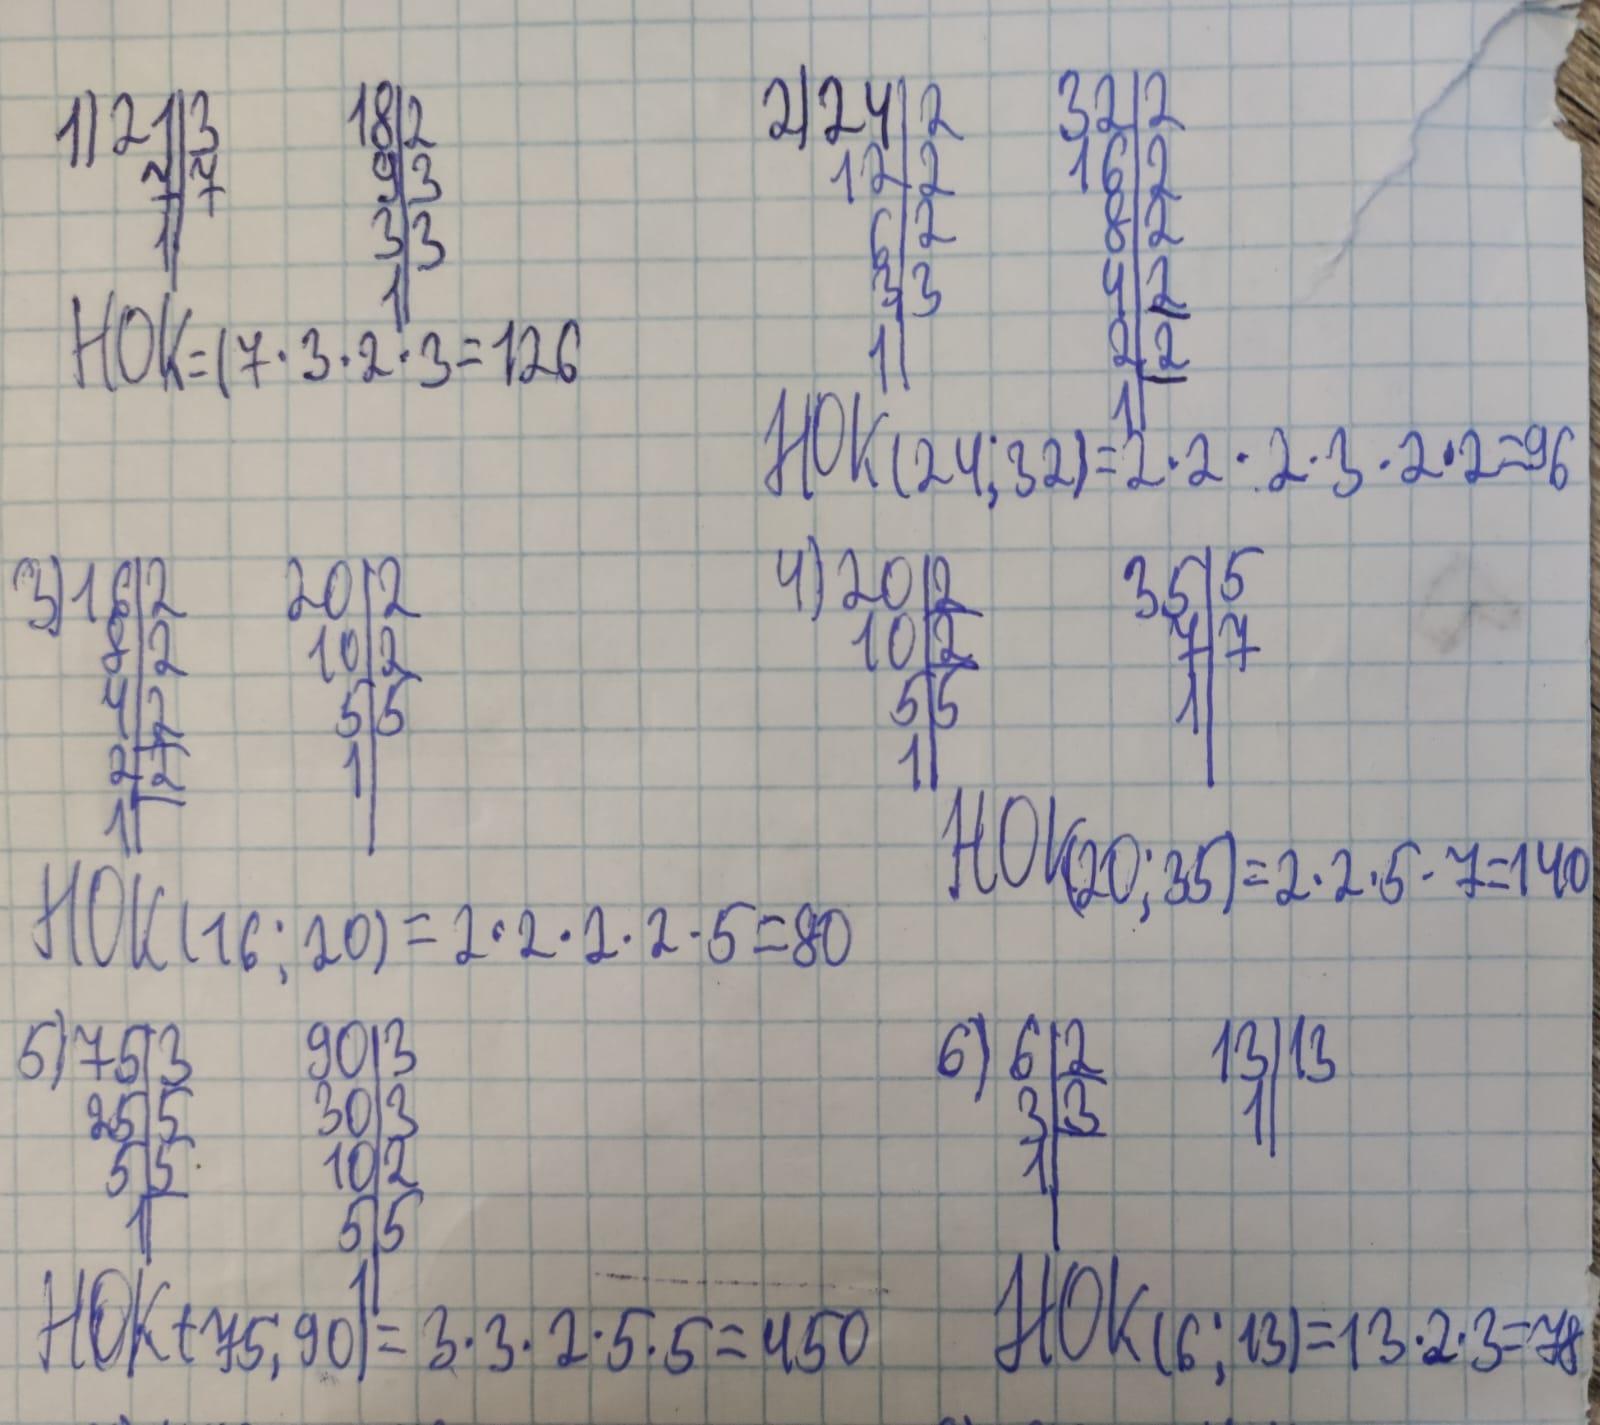 1) 21|3 18|2
7|7 9|3
1| 3|3
1|
НОК=(7·3·2·3=126
2) 24|2 32|2
12|2 16|2
6|2 8|2
3|3 4|2
1| 2|2
1|
НОК(24;32)=2·2·2·3·2·2=96
3) 16|2 20|2
8|2 10|2
4|2 5|5
2|2 1|
1|
НОК(16;20)=2·2·2·2·5=80
4) 20|2 35|5
10|2 7|7
5|5 1|
1|
НОК(20;35)=2·2·5·7=140
5) 75|3 90|3
25|5 30|3
5|5 10|2
1| 5|5
1|
НОК(75;90)=3·3·2·5·5=450
6) 6|2 13|13
3|3 1|
1|
НОК(6;13)=13·2·3=78